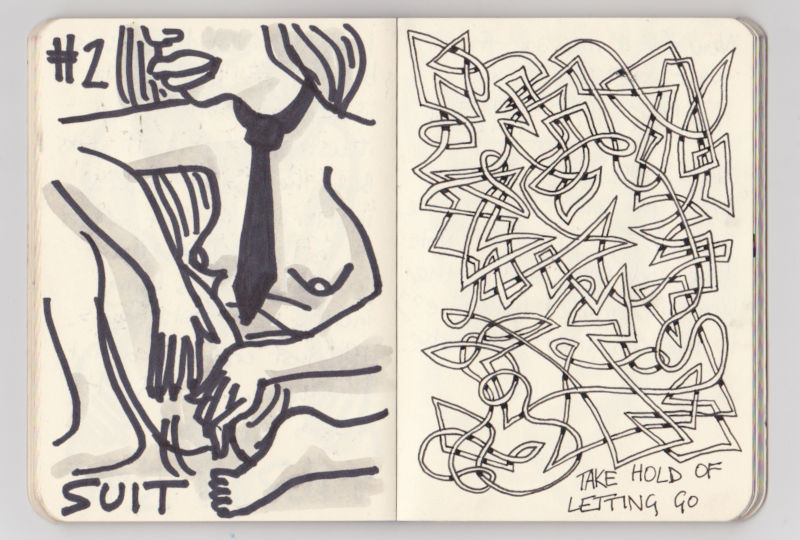 #2
SUIT
TAKE HOLD OF
LETTING GO